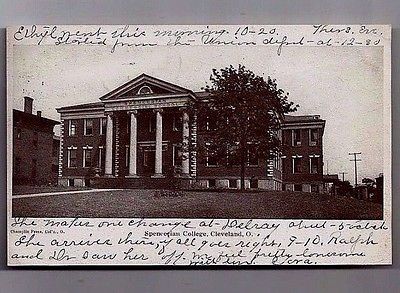 Ethyl went this morning 10-20. Thurs. Eve.
Started from the Union depot-at-12-30
She makes one change at Delray about-5-oclock
Spencerian College, Cleveland, O.
Champlin Press, Col's., O.
She arrives there, if all goes right, 7-10. Ralph
and I saw her off. pretty lonesome